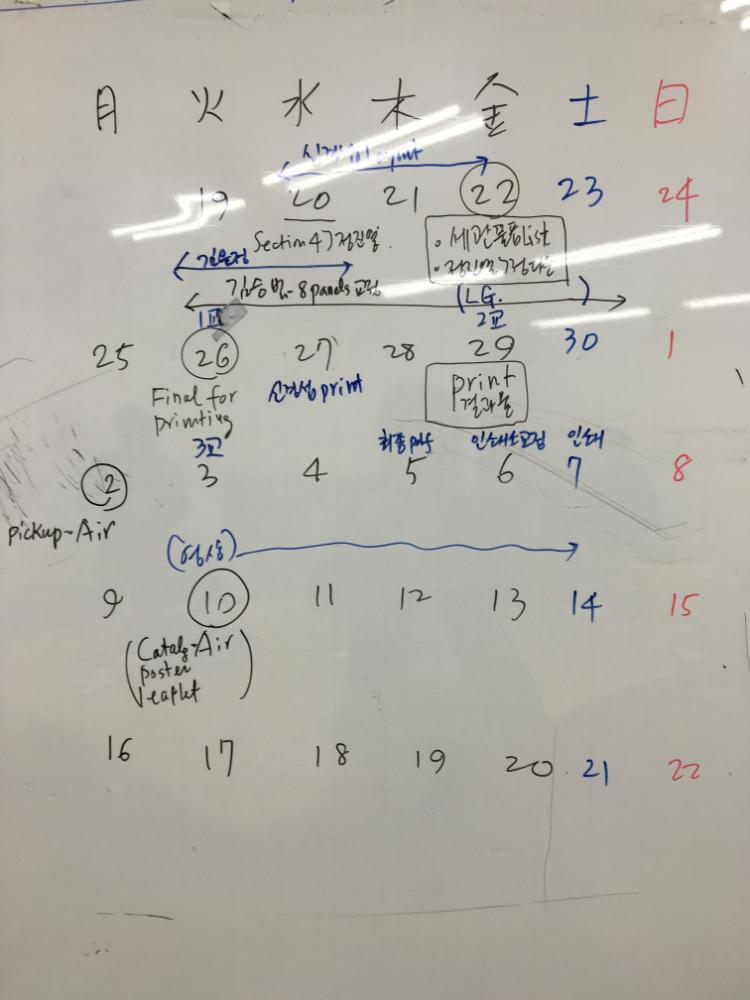 月 火 水 木 金 土 日
layout
19 20 21 22 23 24
Section 4, 정진열
· 세관품목 list
· 정진열, 정다운
김윤정
8 panels 교정
(LG. )
1교 2교
25 26 27 28 29 30 1
Final for
printing
신경섭 print
print
결과물
3교 최종 인쇄소교정 인쇄
2 3 4 5 6 7 8
pickup-Air
9 10 11 12 13 14 15
(Catalg-Air
poster
leaflet)
16 17 18 19 20 21 22